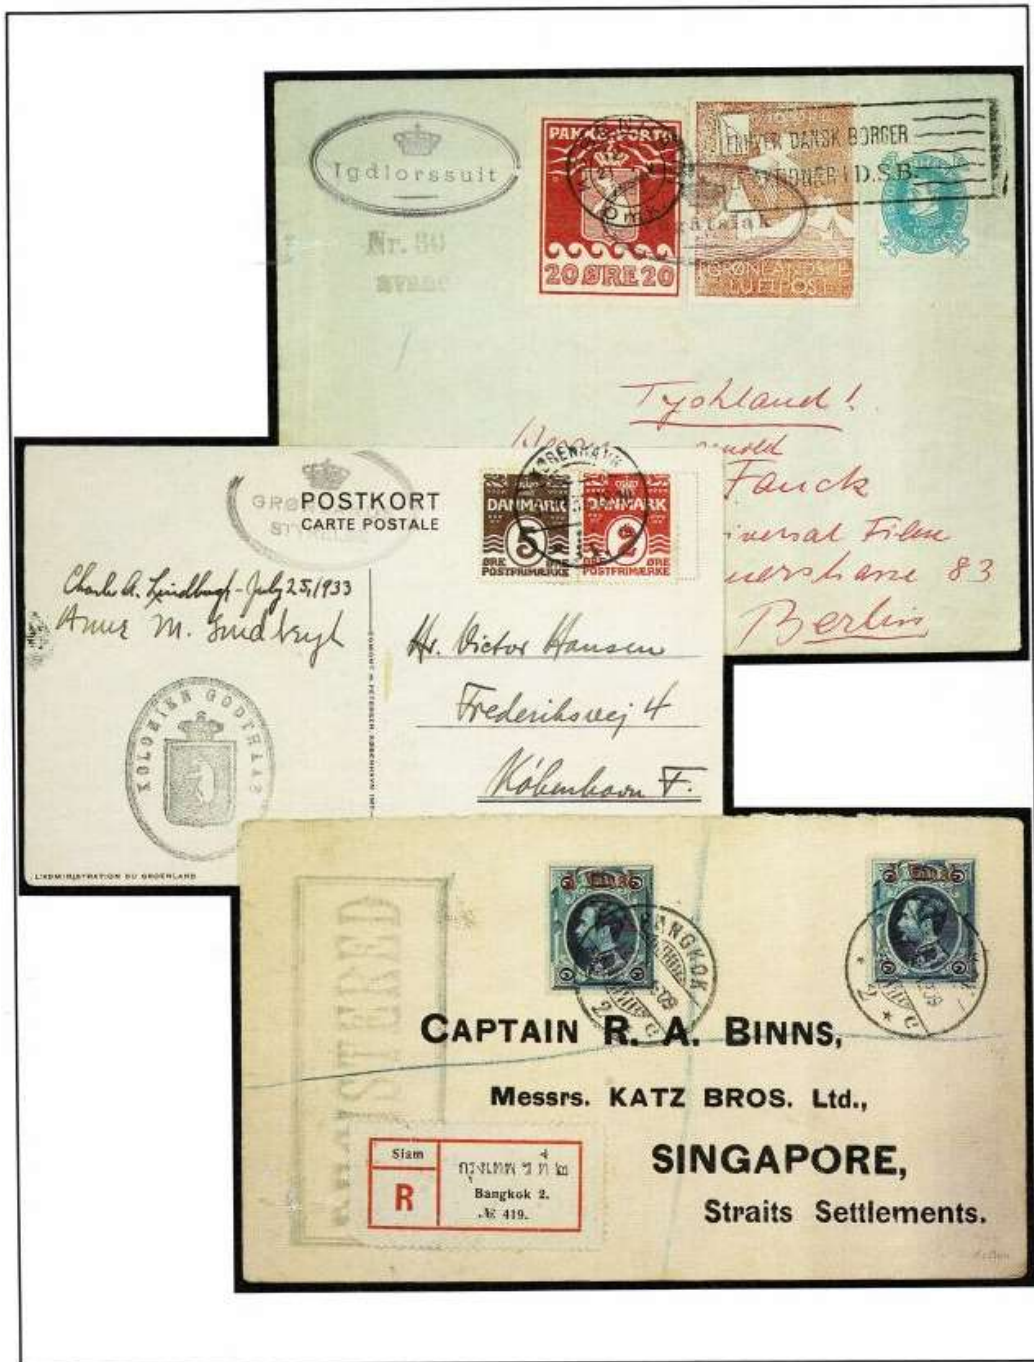 Igdlorssuit
Nr. 80
PAKKE-PORTO
20 ØRE 20
ENHVER DANSK BORGER
AKTIONÆR I D.S.B.
GRØNLANDSKE
LUFTPOST
Tyskland!
Fanck
Film
83
Berlin
POSTKORT
CARTE POSTALE
KØBENHAVN
DANMARK
5
ØRE ØRE
POSTFRIMÆRKE
DANMARK
2
ØRE ØRE
POSTFRIMÆRKE
Charles A. Lindbergh - July 25, 1933
Anne M. Lindbergh
KOLONIEN GODTHAAB
Hr. Victor Hansen
Frederiksvej 4
København F.
L'ADMINISTRATION DU GROENLAND
REGISTERED
BANGKOK
2
CAPTAIN R. A. BINNS,
Messrs. KATZ BROS. Ltd.,
SINGAPORE,
Straits Settlements.
Siam
R
กรุงเทพฯ ที่ ๒
Bangkok 2.
№ 419.